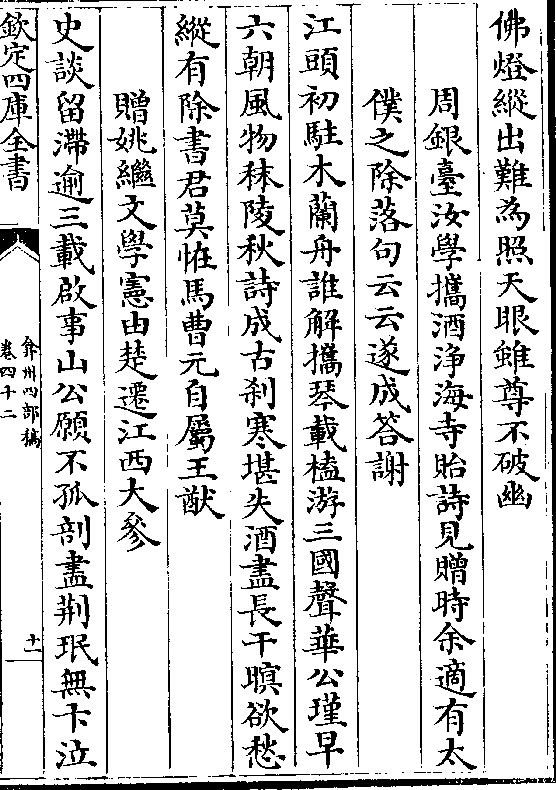 佛燈縱出難為照天眼雖尊不破幽
周銀臺汝學攜酒淨海寺貽詩見贈時余適有太
僕之除落句云云遂成答謝
江頭初駐木蘭舟誰解攜琴載榼游三國聲華公瑾早
六朝風物秣陵秋詩成古刹寒堪失酒盡長干暝欲愁
縱有除書君莫恠馬曹元自屬王猷
贈姚繼文學憲由楚遷江西大參
史談留滯逾三載啟事山公願不孤剖盡荆珉無卞泣
欽定四庫全書
弇州四部稿
卷四十二
十一